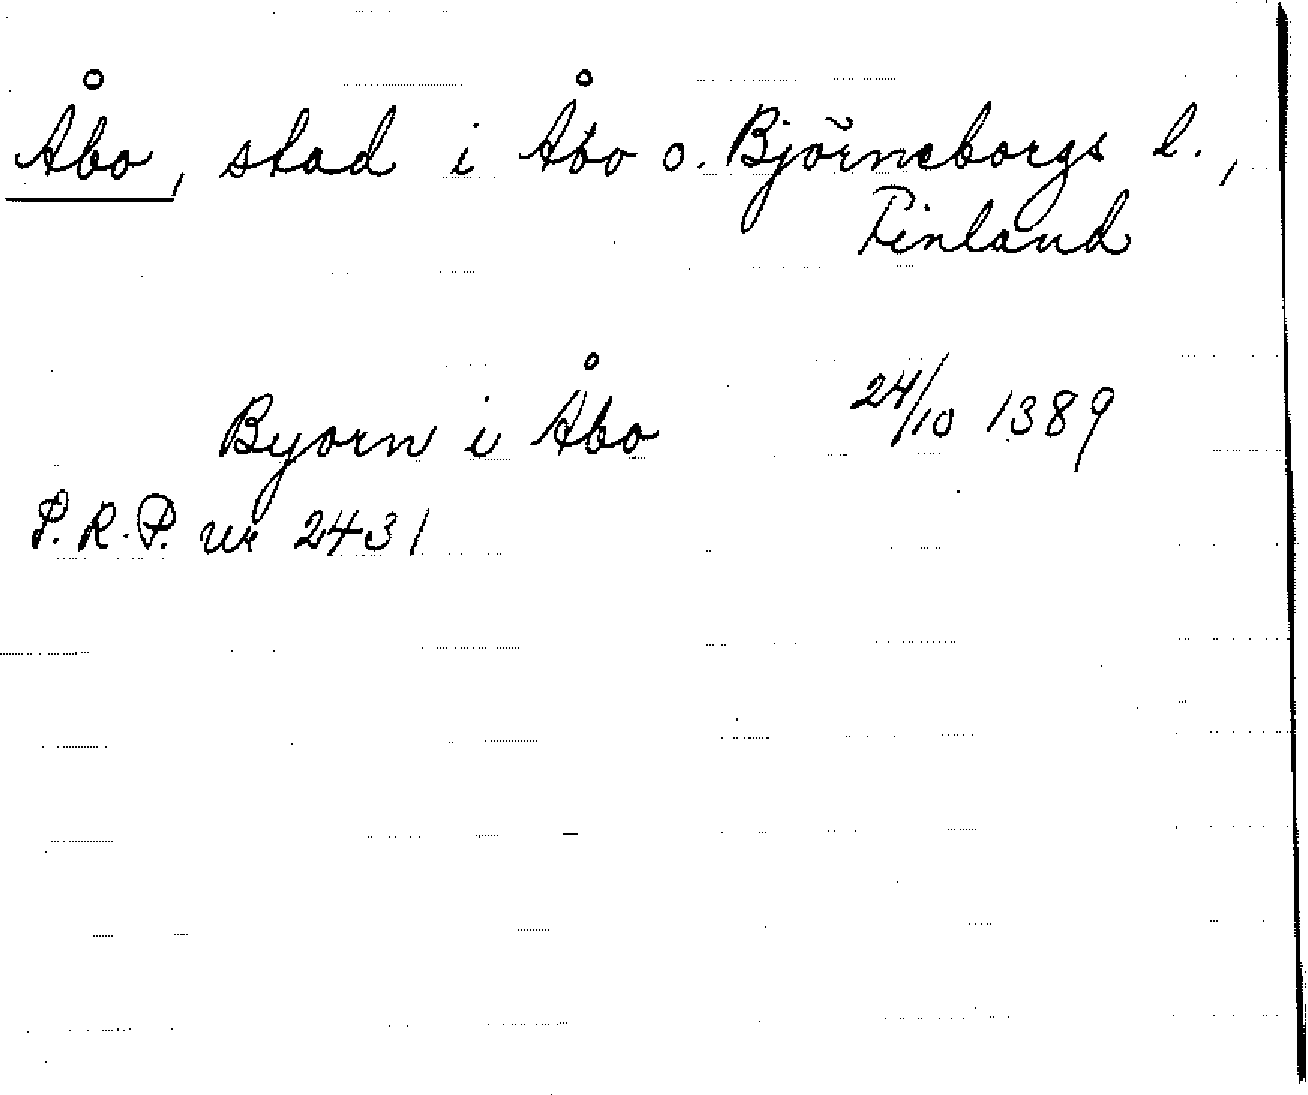 Åbo, stad i Åbo o. Björneborgs l.,
Finland
Byorn i Åbo 24/10 1389
S.R.P. nr 2431